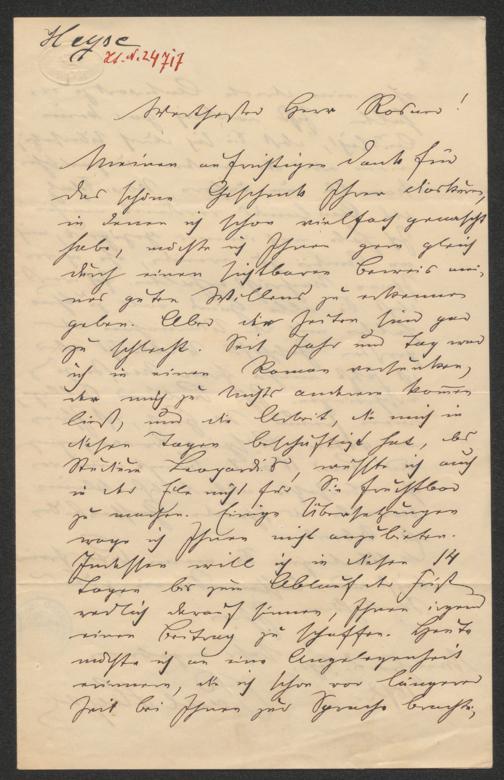 Heyse
H.I.N. 24717
Werthester Herr Rosner!
Meinen aufrichtigen Dank für
das schöne Geschenk Ihrer Dioskuren,
in denen ich schon vielfach genascht
habe, möchte ich Ihnen gern gleich
durch einen sichtbaren Beweis mei-
nes guten Willens zu erkennen
geben. Aber die Zeiten sind gar
zu schlecht. Seit Jahr und Tag war
ich in einen Roman versunken,
der mich zu Nichts anderem kommen
ließ, und die Arbeit, die mich in
diesen Tagen beschäftigt hat, das
Studium Leopardi's, wüßte ich auch
in der Eile nicht für Sie fruchtbar
zu machen. Einige Übersetzungen
wage ich Ihnen nicht anzubieten.
Indessen will ich in diesen 14
Tagen bis zum Ablauf der Frist
redlich darauf sinnen, Ihnen irgend
einen Beitrag zu schaffen. Heute
möchte ich an eine Angelegenheit
erinnern, die ich schon vor längerer
Zeit bei Ihnen zur Sprache brachte,